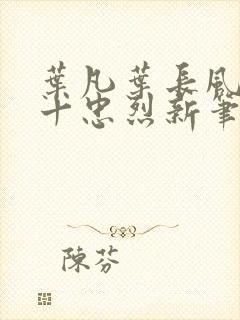 葉凡葉長風
十忠烈新筆
陳芬